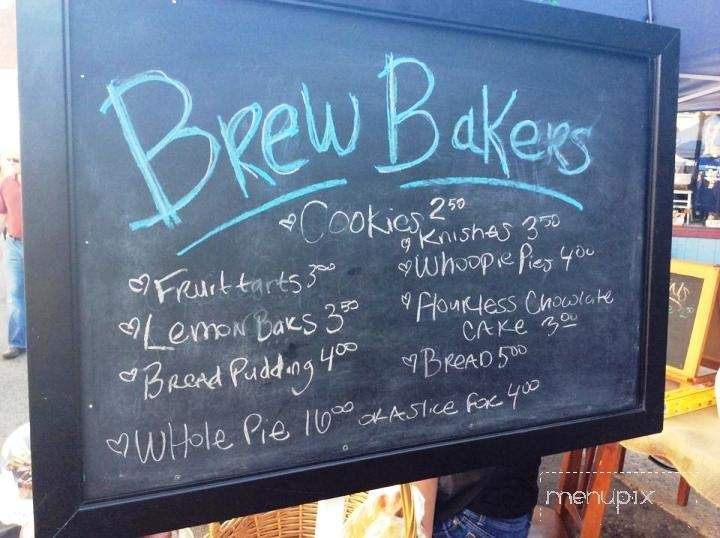 Brew Bakers
Cookies 2.50
Knishes 3.50
Whoopie Pies 4.00
Fruit tarts 3.00
Lemon Bars 3.50
Bread Pudding 4.00
Flourless Chocolate
Cake 3.00
Bread 5.00
Whole Pie 16.00 or A Slice For 4.00
menupix